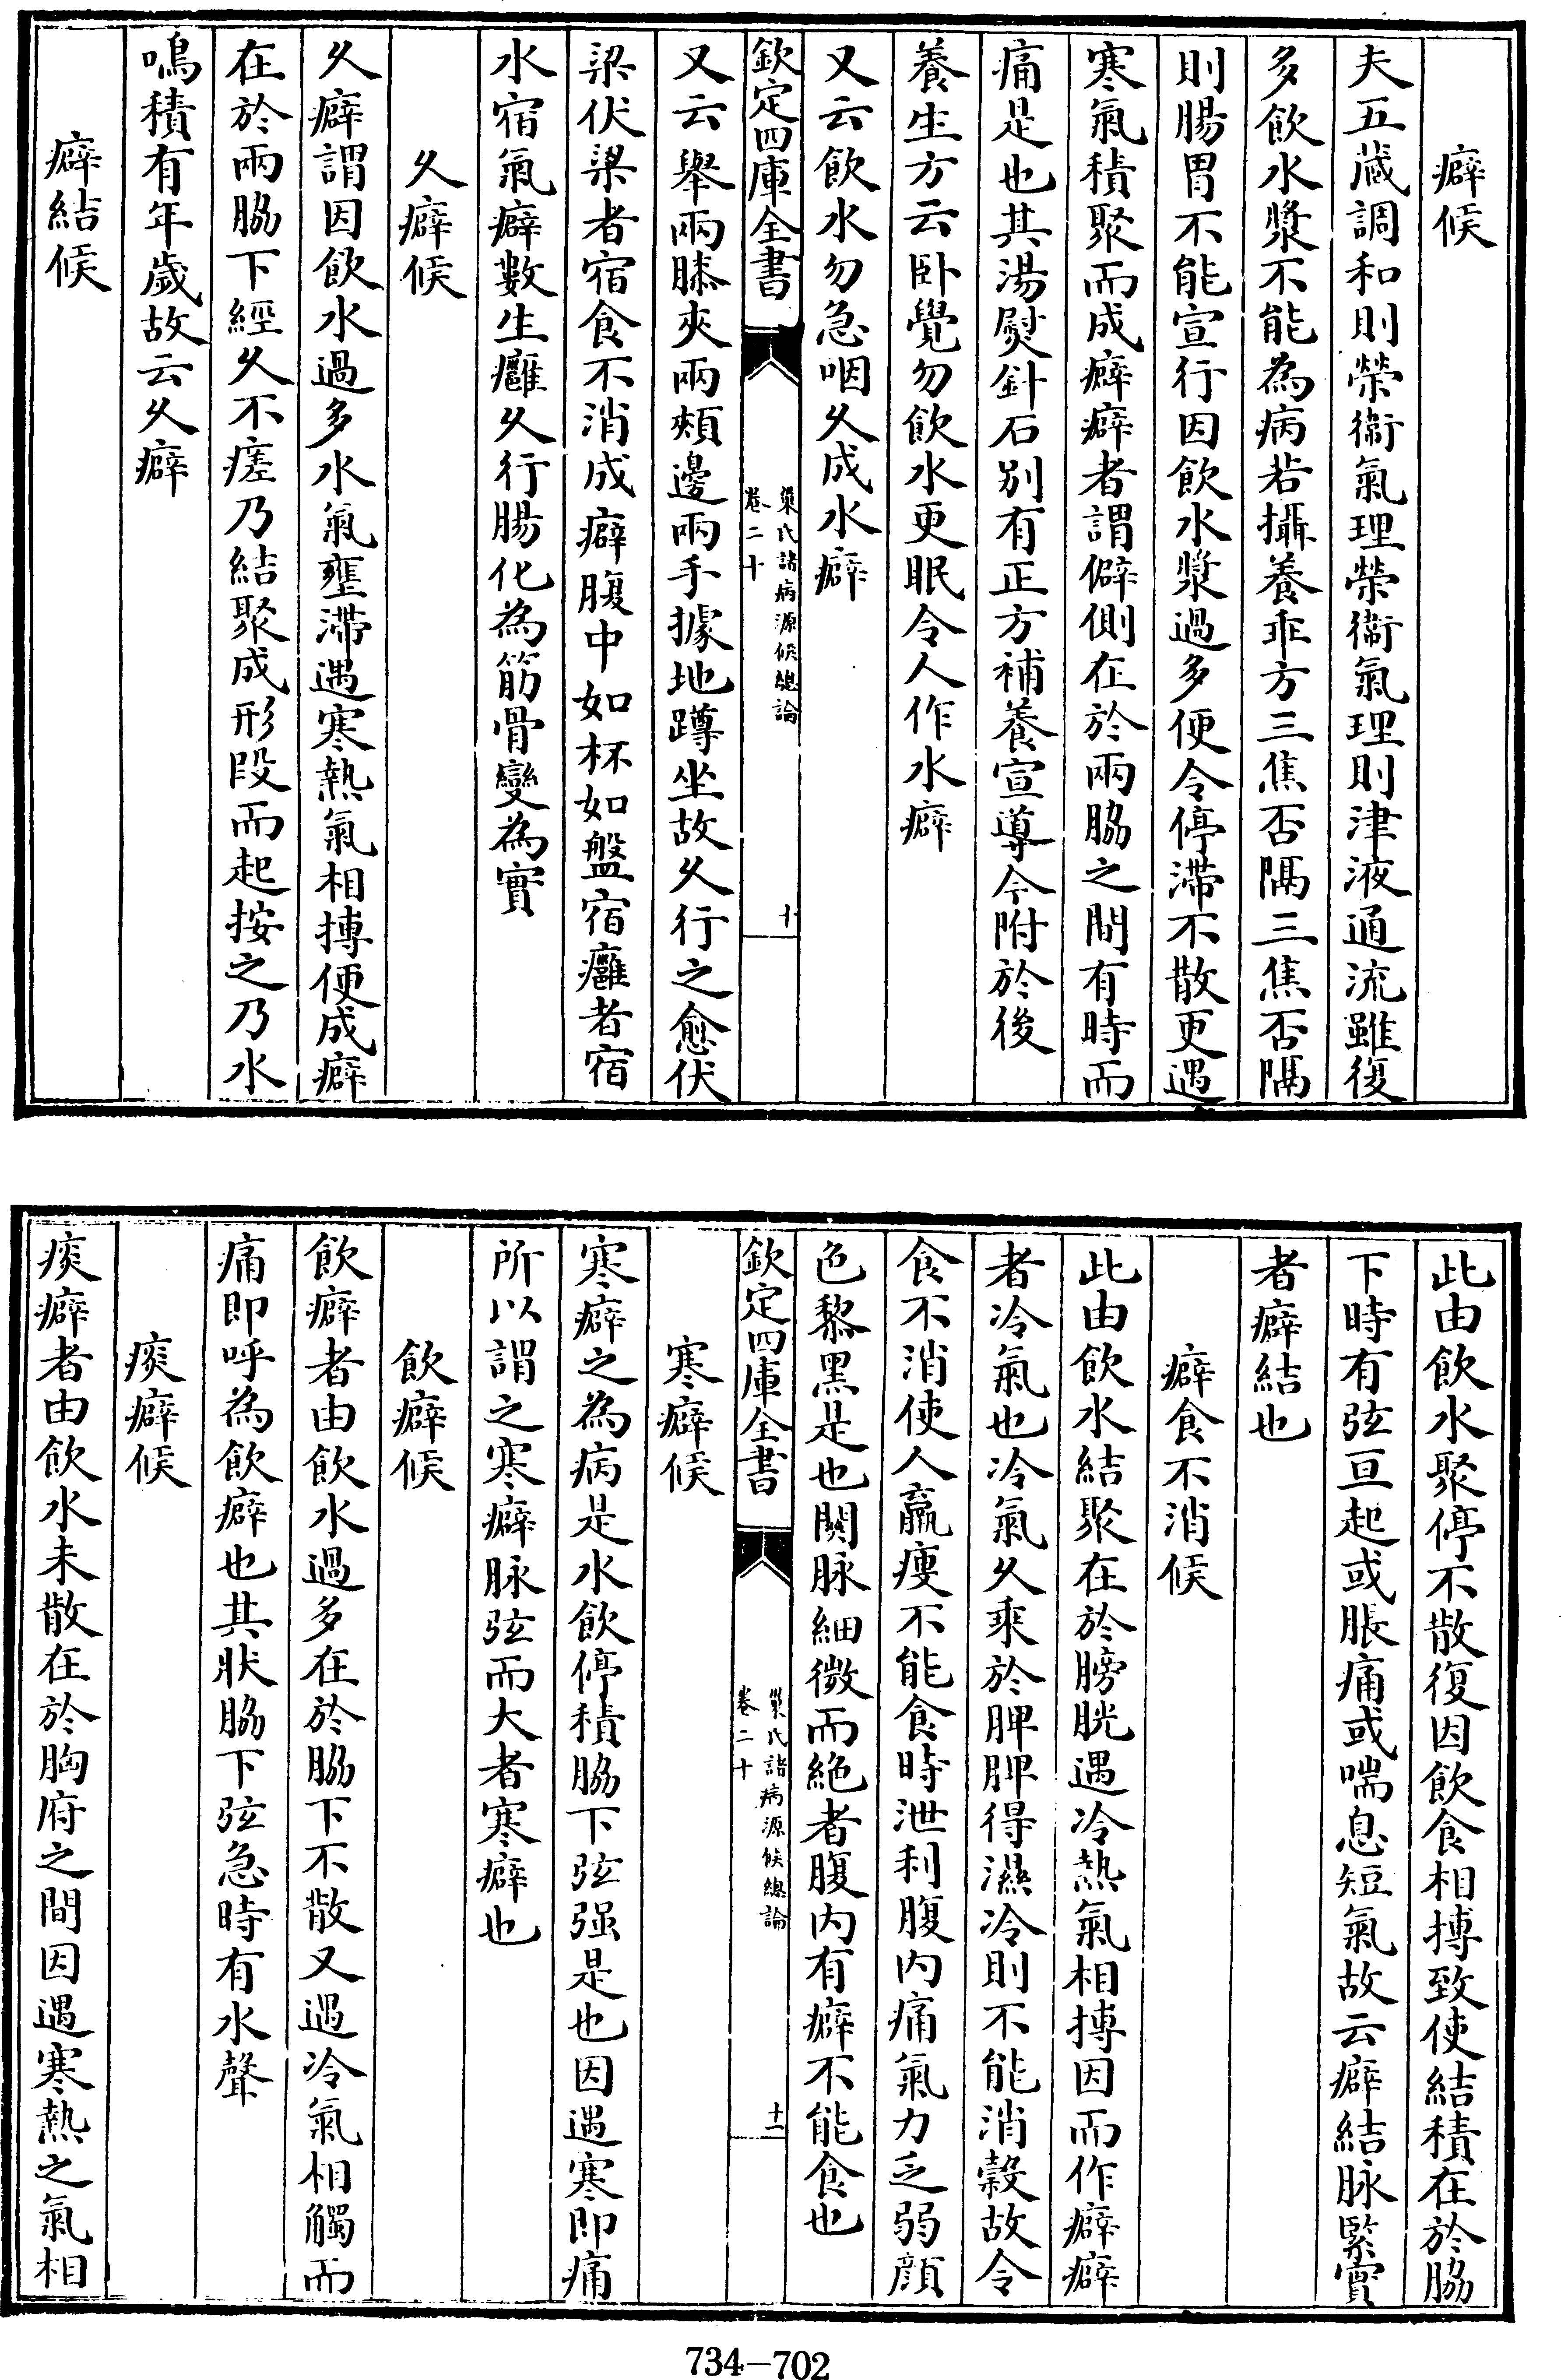 癖候
夫五藏調和則榮衞氣理榮衞氣理則津液通流雖復
多飲水漿不能為病若攝養乖方三焦否隔三焦否隔
則腸胃不能宣行因飲水漿過多便令停滯不散更遇
寒氣積聚而成癖癖者謂僻側在於兩脇之間有時而
痛是也其湯熨針石别有正方補養宣導今附於後
養生方云卧覺勿飲水更眠令人作水癖
又云飲水勿急咽久成水癖
欽定四庫全書
巢氏諸病源候總論
卷二十
十
又云舉兩膝夾兩頰邊兩手據地蹲坐故久行之愈伏
梁伏梁者宿食不消成癖腹中如杯如盤宿癰者宿
水宿氣癖數生癰久行腸化為筋骨變為實
久癖候
久癖謂因飲水過多水氣壅滯遇寒熱氣相搏便成癖
在於兩脇下經久不瘥乃結聚成形段而起按之乃水
鳴積有年歲故云久癖
癖結候
此由飲水聚停不散復因飲食相搏致使結積在於脇
下時有弦亘起或脹痛或喘息短氣故云癖結脉緊實
者癖結也
癖食不消候
此由飲水結聚在於膀胱遇冷熱氣相搏因而作癖癖
者冷氣也冷氣久乘於脾脾得濕冷則不能消穀故令
食不消使人羸瘦不能食時泄利腹内痛氣力乏弱顔
色黎黑是也關脉細微而絶者腹内有癖不能食也
欽定四庫全書
巢氏諸病源候總論
卷二十
十一
寒癖候
寒癖之為病是水飲停積脇下弦强是也因遇寒即痛
所以謂之寒癖脉弦而大者寒癖也
飲癖候
飲癖者由飲水過多在於脇下不散又遇冷氣相觸而
痛即呼為飲癖也其狀脇下弦急時有水聲
痰癖候
痰癖者由飲水未散在於胸府之間因遇寒熱之氣相
734—702